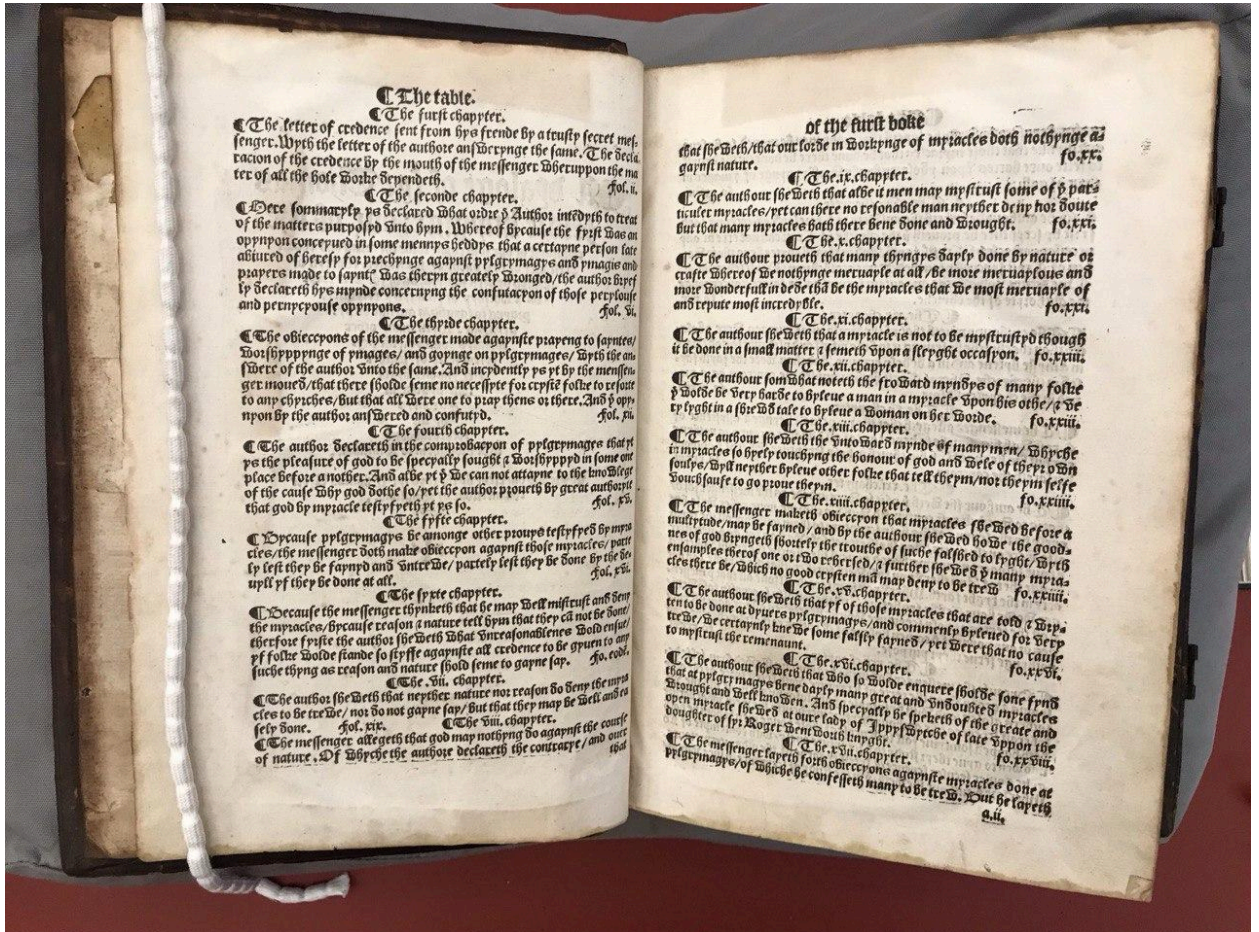 ¶ The table.
¶ The furst chapyter.
¶ The letter of credence sent from hys frende by a trusty secret mes-
senger. Wyth the letter of the authore answerynge the same. The decla-
racion of the credence by the mouth of the messenger wheruppon the ma
ter of all the hole worke dependeth. fol. ii.
¶ The seconde chapyter.
¶ Here sommaryly ys declared what ordre þe Author intēdyth to treat
of the matters purposyd vnto hym. Whereof bycause the fyrst was an
oppynyon conceyued in some mennys heddys that a certayne person late
abiured of heresy for prechynge agaynst pylgrymagys and ymagis and
prayers made to sayntꝭ was theryn greately wronged/ the author bryef
ly declareth hys mynde concernyng the confutacyon of those perylouse
and pernycyouse oppynyons. fol. vi.
¶ The thyrde chapyter.
¶ The obieccyons of the messenger made agaynste prayeng to sayntes/
worshyppynge of ymages/ and goynge on pylgrymages/ wyth the an
swere of the author vnto the same. And incydently ys yt by the menssen
ger moued/ that there sholde seme no necessyte for crystē folke to resorte
to any chyrches/ but that all were one to pray thens or there. And þt opy-
nyon by the author answered and confutyd. fol. xii.
¶ The fourth chapyter.
¶ The author declareth in the comprobacyon of pylgrymages that yt
ys the pleasure of god to be specyally sought & worshyppyd in some one
place before a nother. And albe yt þt we can not attayne to the knowlege
of the cause why god dothe so/ yet the author proueth by great authoryte
that god by myracle testyfyeth yt ys so. fol. xv.
¶ The fyfte chapyter.
¶ Bycause pylgrymagys be amonge other prouys testyfyed by myra
cles/ the messenger doth make obieccyon agaynst those myracles/ parte
ly lest they be faynyd and vntrewe/ partely lest they be done by the de-
uyll yf they be done at all. fol. xvi.
¶ The syxte chapyter.
¶ Because the messenger thynketh that he may well mistrust and deny
the myracles/ bycause reason & nature tell hym that they cā not be done/
therfore fyrste the author sheweth what vnreasonablenes wold ensue/
yf folke wolde stande so styffe agaynste all credence to be gyuen to any
suche thyng as reason and nature shold seme to gayne say. fo. eodē.
¶ The. vii. chapyter.
¶ The author sheweth that neyther nature nor reason do deny the myra
cles to be trewe/ nor do not gayne say/ but that they may be well and ea
sely done. fol. xix. ¶ The viii. chapyter.
¶ The messenger allegeth that god may nothyng do agaynst the course
of nature. Of whyche the authore declareth the contrarye/ and ouer
that
of the furst boke
that sheweth/ that our lorde in workynge of myracles doth nothynge a-
gaynst nature. fo. xx.
¶ The. ix. chapyter.
¶ The authour sheweth that albe it men may mystrust some of þe par-
ticuler myracles/ yet can there no resonable man neyther deny nor doute
but that many myracles hath there bene done and wrought. fo. xxi.
¶ The. x. chapyter.
¶ The author proueth that many thyngys dayly done by nature or
crafte whereof we nothynge meruayle at all/ be more meruaylous and
more wonderfull in dede thā be the myracles that we most meruayle of
and repute most incredyble. fo. xxi.
¶ The. xi. chapyter.
¶ The authour sheweth that a myracle is not to be mystrustyd though
it be done in a small matter & semeth vpon a sleyght occasyon. fo. xxiii.
¶ The. xii. chapyter.
¶ The authour somwhat noteth the froward myndys of many folke
þt wolde be very harde to byleue a man in a myracle vpon his othe/ & ve
ry lyght in a shrewd tale to byleue a woman on her worde. fo. xxiii.
¶ The. xiii. chapyter.
¶ The authour sheweth the vntoward mynde of many men/ whyche
in myracles so hyely touchyng the honour of god and wele of theyr own
soulys/ wyll neyther byleue other folke that tell theym/ nor theym selfe
vouchsaufe to go proue theym. fo. xxiiii.
¶ The. xiiii. chapyter.
¶ The messenger maketh obieccyon that myracles shewed before a
multytude/ may be fayned/ and by the authour shewed howe the good-
nes of god bryngeth shortely the trouthe of suche falshed to lyght/ wyth
ensamples therof one or two rehersed/ & further shewed þt many myra-
cles there be/ which no good crysten mā may deny to be trew fo. xxiiii.
¶ The. xv. chapyter.
¶ The authour sheweth that yf of those myracles that are told & wry-
ten to be done at dyuers pylgrymagys/ and commenly byleued for very
trewe/ we certaynly knewe some falsly fayned/ yet were that no cause
to mystrust the remenaunt. fo. xxvi.
¶ The. xvi. chapyter.
¶ The authour sheweth that who so wolde enquere sholde sone fynd
that at pylgrymagys bene dayly many great and vndouted myracles
wrought and well knowen. And specyally he speketh of the greate and
open myracle shewed at oure lady of Ippyswytche of late vppon the
doughter of syr Roger wentworth knyght. fo. xxviii.
¶ The. xvii. chapyter.
¶ The messenger layeth forth obieccyons agaynste myracles done at
pylgrymagys/ of whiche he confesseth many to be trew. But he layeth
a.ii.